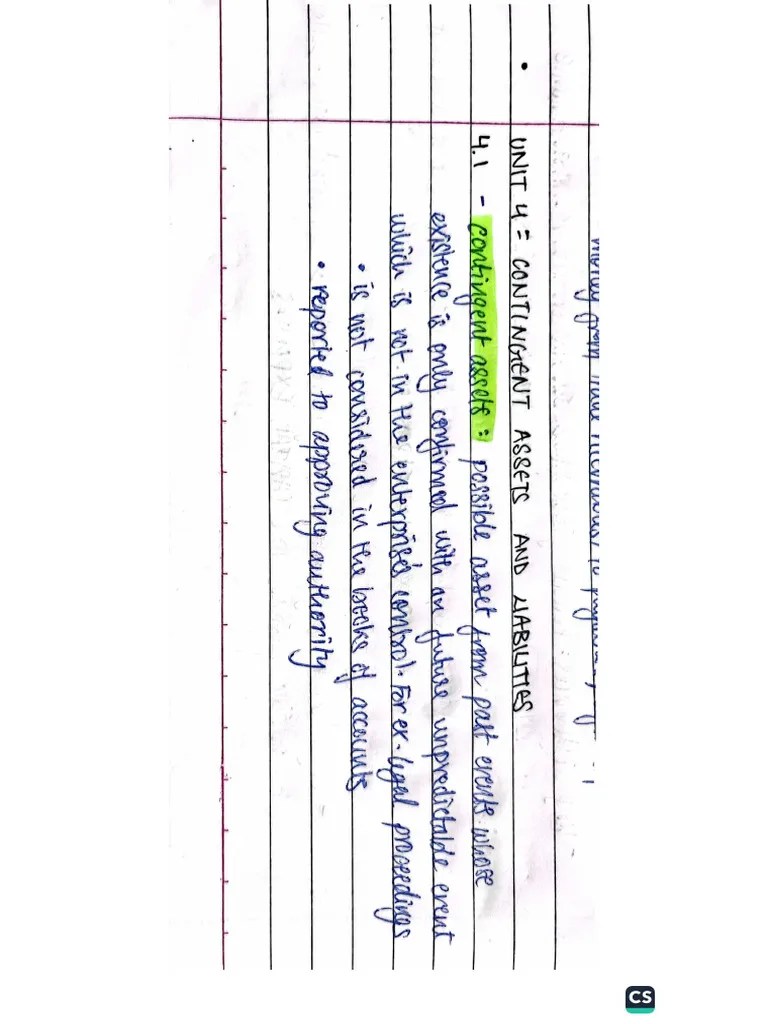 UNIT 4 = CONTINGENT ASSETS AND LIABILITIES
4.1 - contingent assets : possible asset from past events whose
existence is only confirmed with an future unpredictable event
which is not in the enterprises control. For ex. legal proceedings
• is not considered in the books of accounts
• reported to approving authority
CS